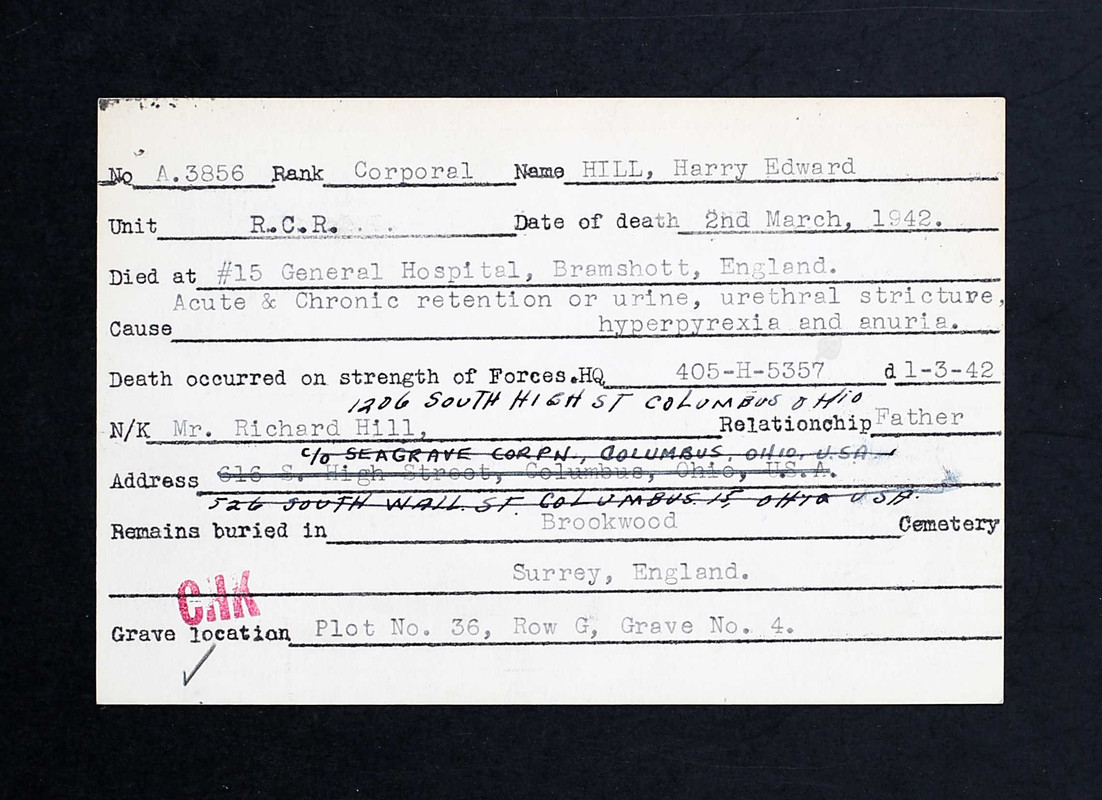 No A.3856 Rank Corporal Name HILL, Harry Edward
Unit R.C.R. Date of death 2nd March, 1942.
Died at #15 General Hospital, Bramshott, England.
Acute & Chronic retention or urine, urethral stricture,
Cause hyperpyrexia and anuria.
Death occurred on strength of Forces.HQ 405-H-5357 d 1-3-42
1206 SOUTH HIGH ST COLUMBUS OHIO
N/K Mr. Richard Hill, Relationship Father
c/o SEAGRAVE CORPN, COLUMBUS, OHIO, U.S.A
Address 616 S. High Street, Columbus, Ohio, U.S.A.
526 SOUTH WALL ST COLUMBUS 15, OHIO USA.
Remains buried in Brookwood Cemetery
Surrey, England.
CHK
Grave location Plot No. 36, Row G, Grave No. 4.